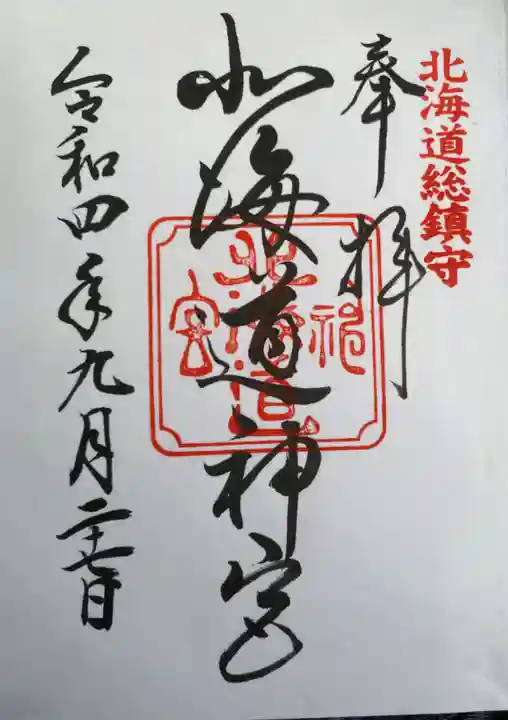 北海道総鎮守
奉拝
北海道神宮
令和四年九月二十七日